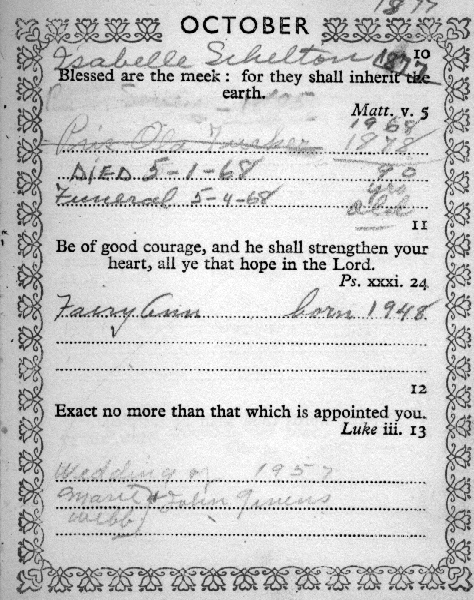 1877
OCTOBER
Isabelle Schelton 1877 10
Blessed are the meek: for they shall inherit the
earth.
Matt. v. 5
1968
1878
DIED 5-1-68 90
Funeral 5-4-68 yrs
old
11
Be of good courage, and he shall strengthen your
heart, all ye that hope in the Lord.
Ps. xxxi. 24
Fairy Ann born 1948
12
Exact no more than that which is appointed you.
Luke iii. 13
Wedding of 1957
Marie & John Givens
Webb